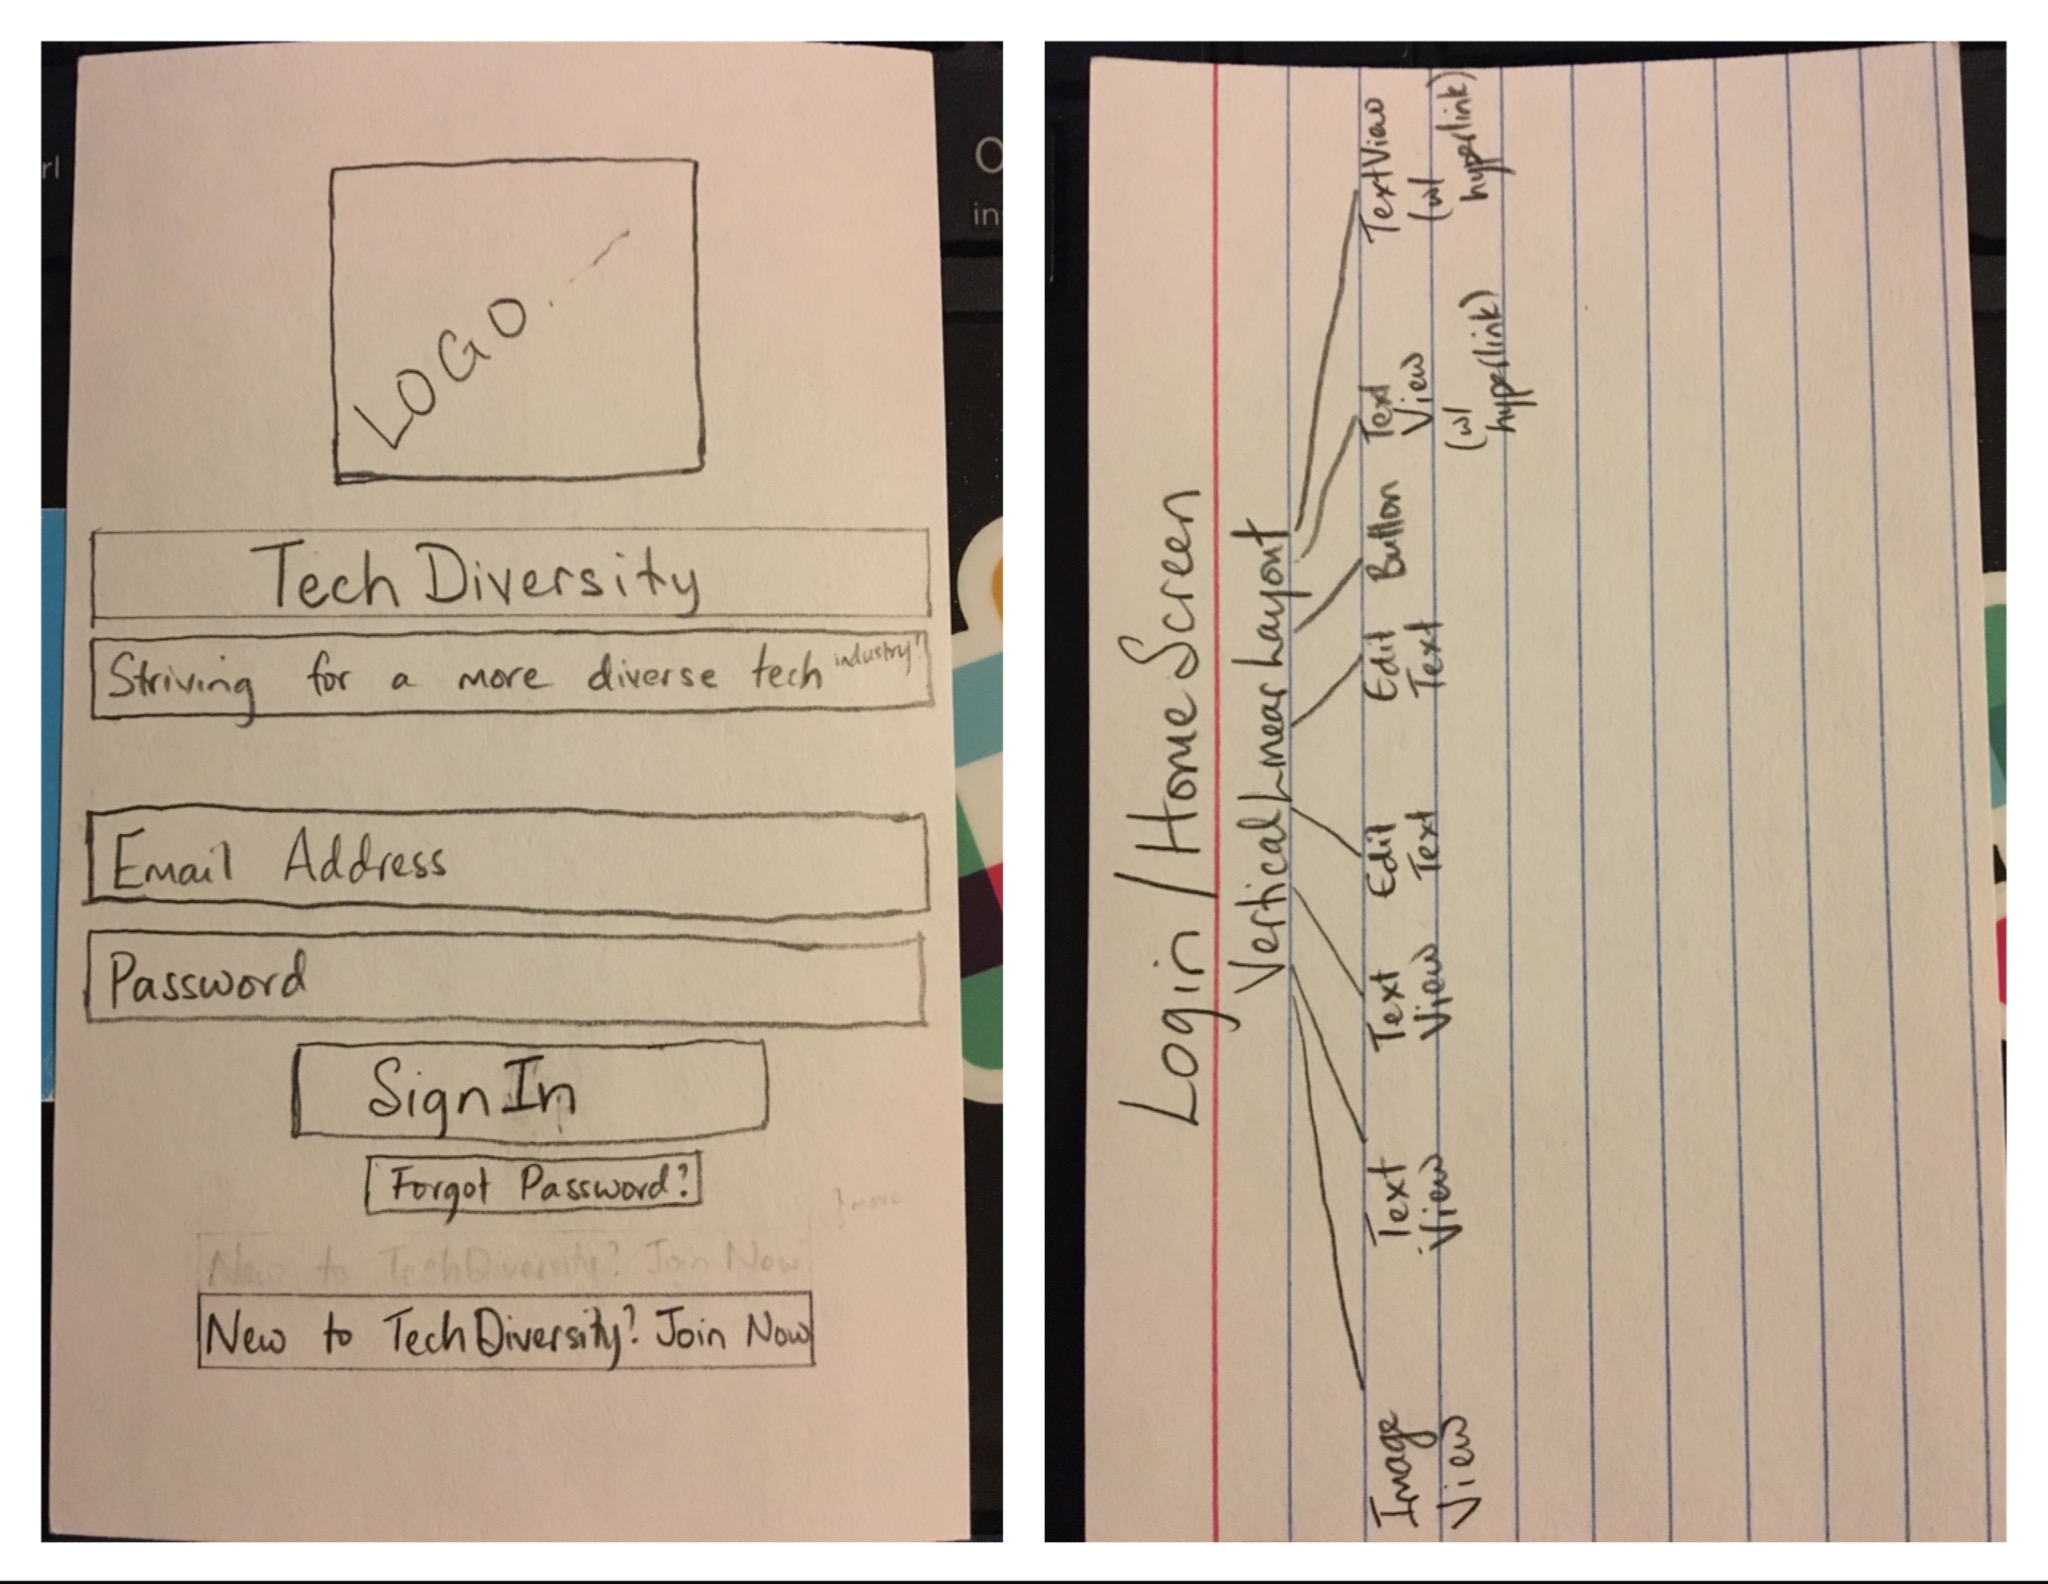 rl
O
in
LOGO
Tech Diversity
Striving for a more diverse tech industry!
Email Address
Password
Sign In
Forgot Password?
} more
New to TechDiversity? Join Now
New to TechDiversity? Join Now
Login / Home Screen
Vertical Linear Layout
Image View
Text View
Text View
Edit Text
Edit Text
Button
Text View (w/ hyperlink)
TextView (w/ hyperlink)